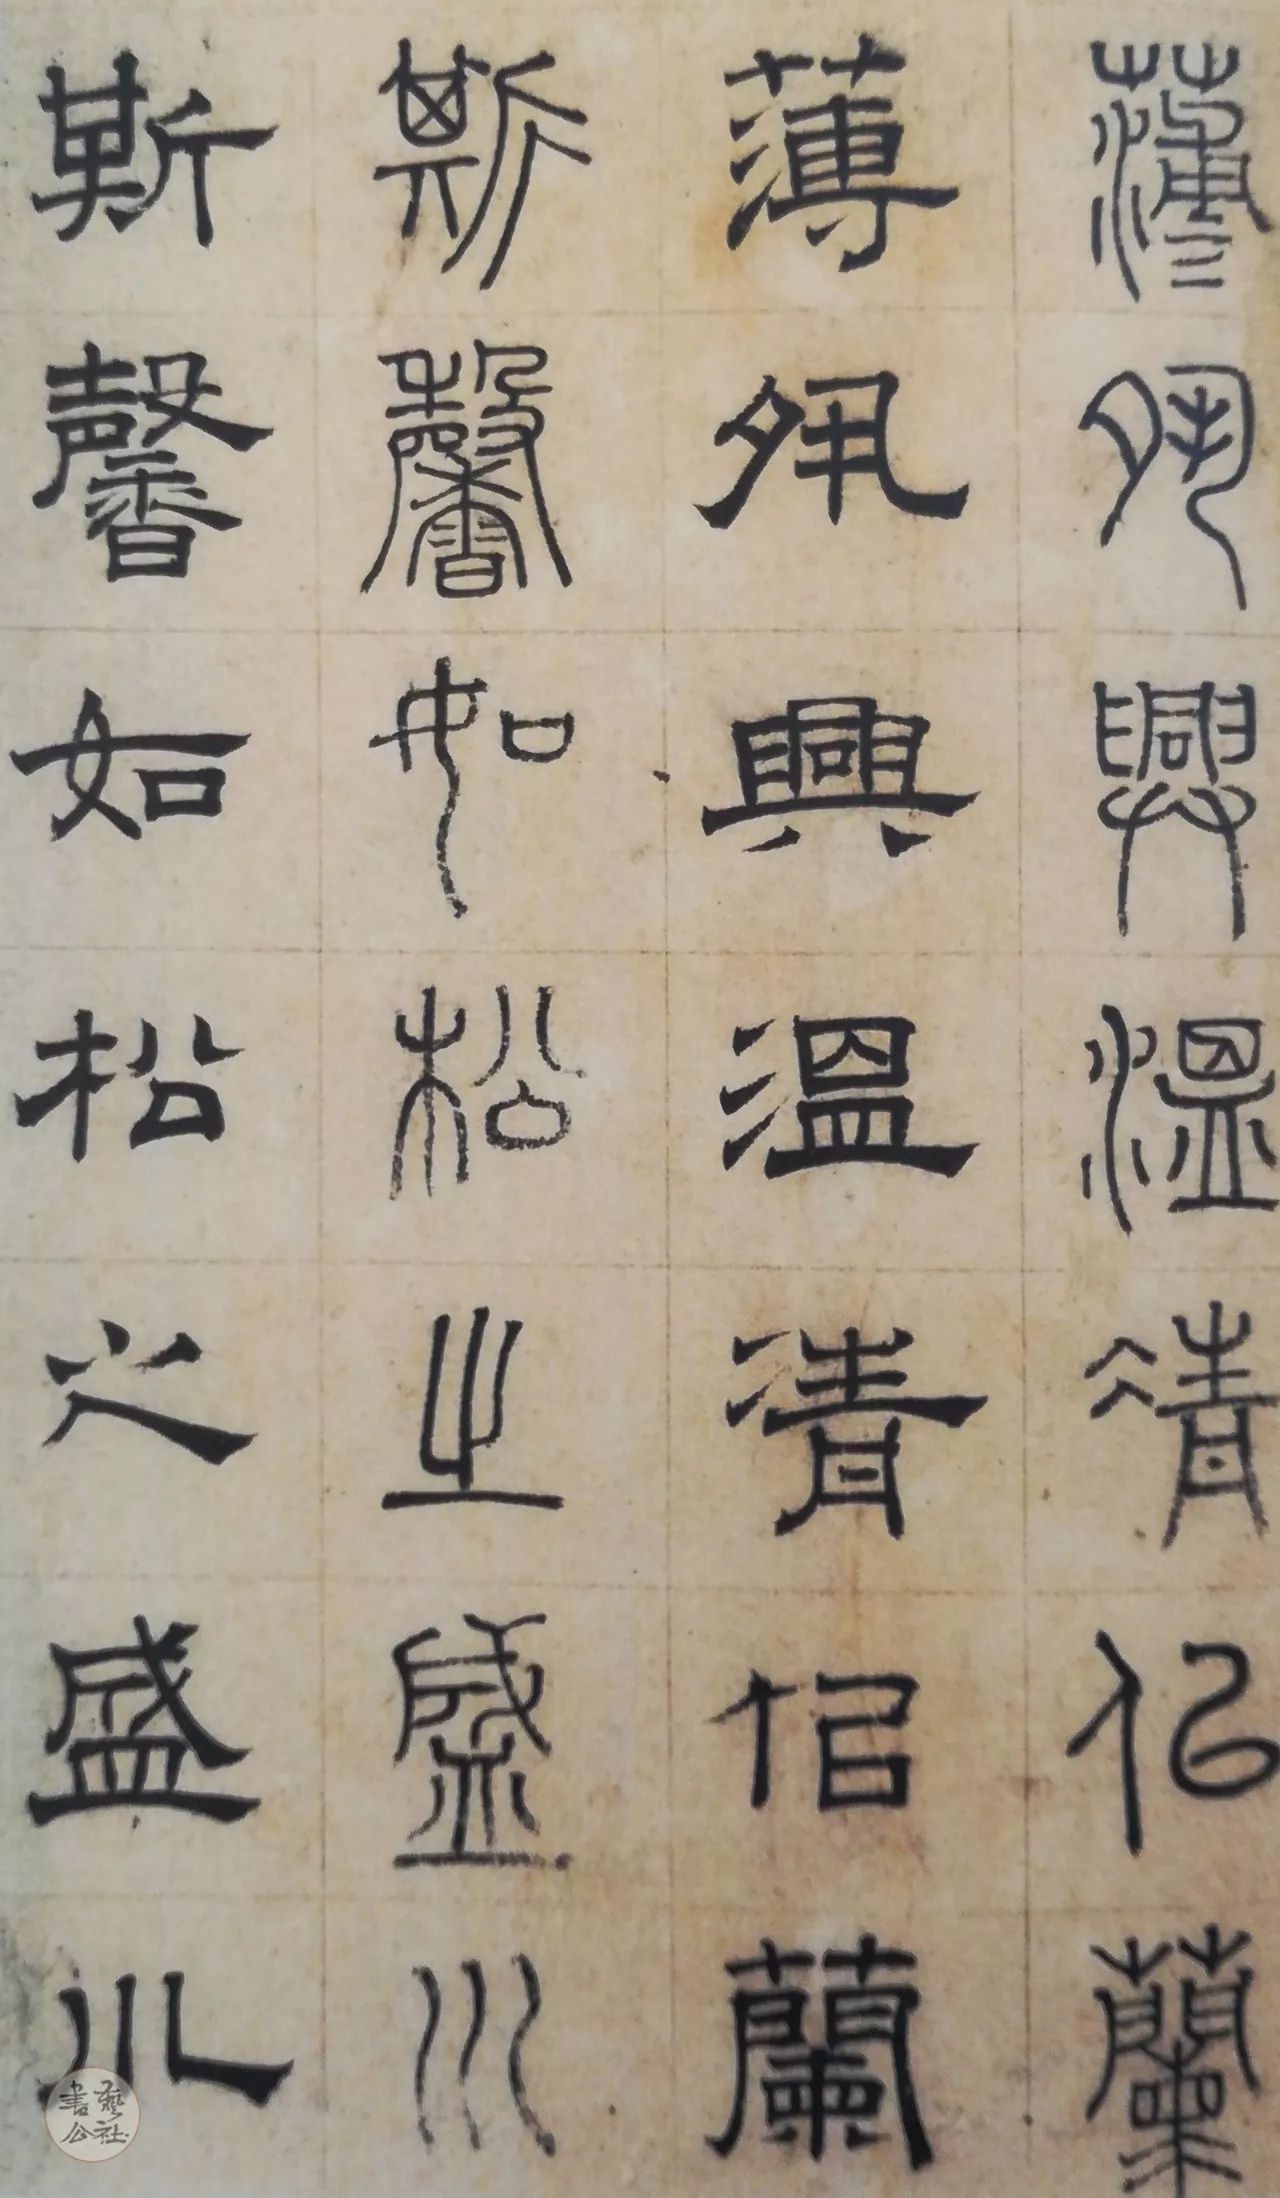 薄夙興溫凊佀蘭
薄夙興溫清佀蘭
斯馨如松之盛川
斯馨如松之盛川
書藝公社